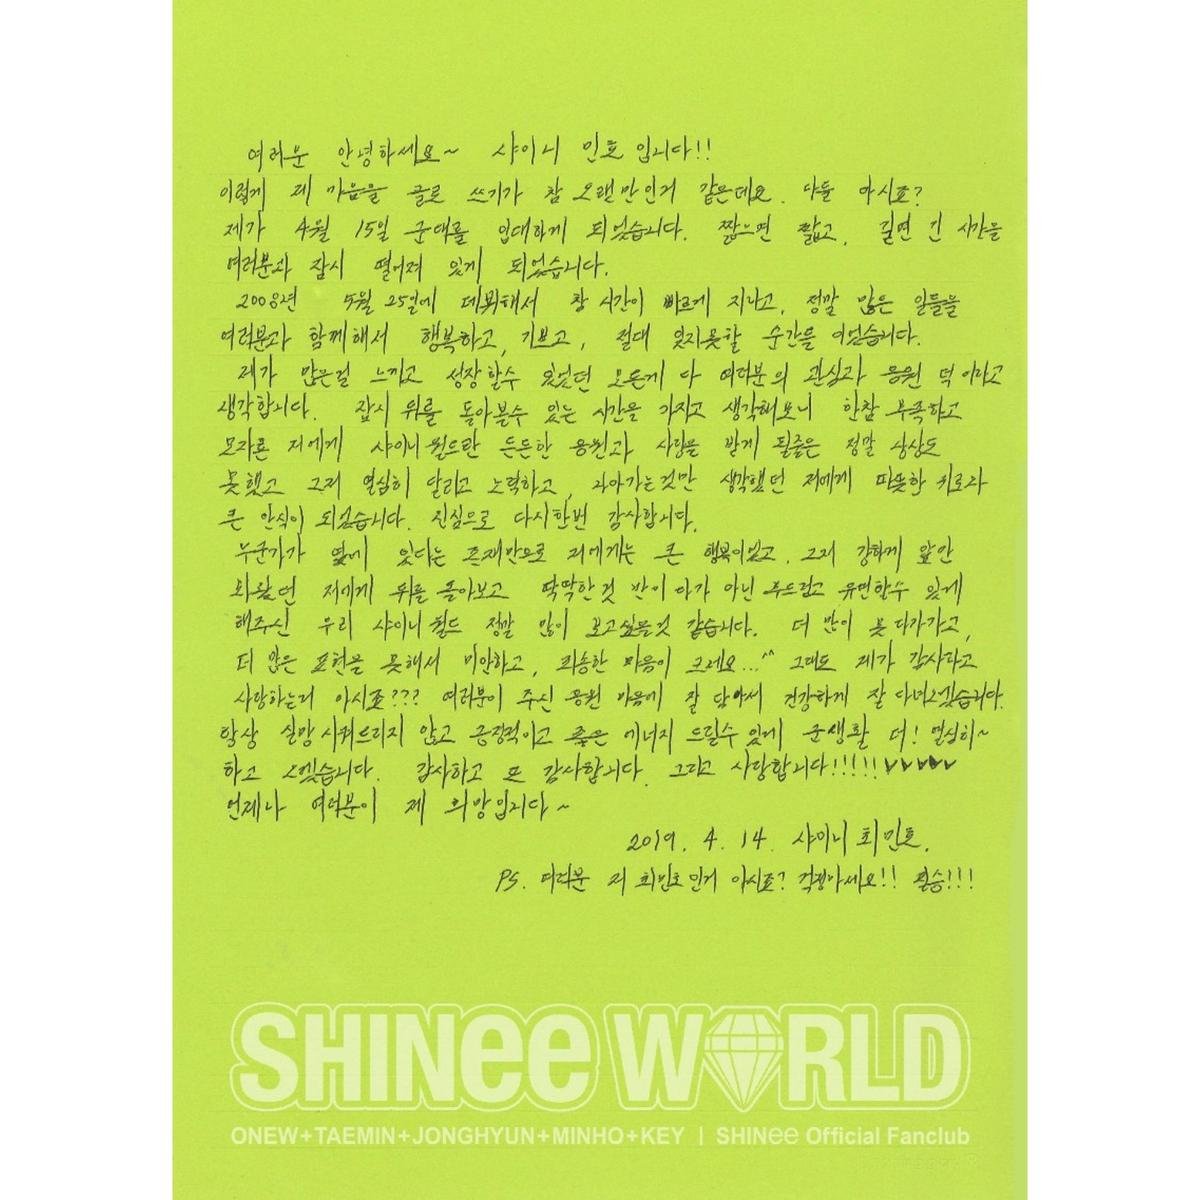 여러분 안녕하세요~ 샤이니 민호 입니다!!
이렇게 제 마음을 글로 쓰기가 참 오랜만인거 같은데요. 다들 아시죠?
제가 4월 15일 군대를 입대하게 되었습니다. 짧으면 짧고, 길면 긴 시간을
여러분과 잠시 떨어져 있게 되었습니다.
2008년 5월 25일에 데뷔해서 참 시간이 빠르게 지나고, 정말 많은 일들을
여러분과 함께해서 행복하고, 기쁘고, 절대 잊지못할 순간들 이었습니다.
제가 많은걸 느끼고 성장할수 있었던 모든게 다 여러분의 관심과 응원 덕이라고
생각합니다. 잠시 뒤를 돌아볼수 있는 시간을 가지고 생각해보니 한참 부족하고
모자른 저에게 샤이니 월드란 든든한 응원과 사랑을 받게 될줄은 정말 상상도
못했고 그저 열심히 달리고 노력하고, 나아가는것만 생각했던 저에게 따뜻한 위로과
큰 안식이 되었습니다. 진심으로 다시한번 감사합니다.
누군가가 옆에 있다는 존재만으로 저에게는 큰 행복이었고, 그저 강하게 앞만
봐왔던 저에게 뒤를 돌아보고 딱딱한것 만이 다가 아닌 부드럽고 유연할수 있게
해주신 우리 샤이니 월드 정말 많이 보고싶을것 같습니다. 더 많이 못 다가가고,
더 많은 표현을 못해서 미안하고, 죄송한 마음이 크네요...^^ 그래도 제가 감사하고
사랑하는거 아시죠??? 여러분이 주신 응원 마음에 잘 담아서 건강하게 잘 다녀오겠습니다.
항상 실망시켜드리지 않고 긍정적이고 좋은 에너지 드릴수 있게 군생활 더! 열심히~
하고 오겠습니다. 감사하고 또 감사합니다. 그리고 사랑합니다!!!!!♥♥♥♥♥
언제나 여러분이 제 희망입니다~
2019. 4. 14. 샤이니 최민호.
PS. 여러분 저 최민호인거 아시죠? 걱정마세요!! 필승!!!
SHINee WORLD
ONEW+TAEMIN+JONGHYUN+MINHO+KEY | SHINee Official Fanclub